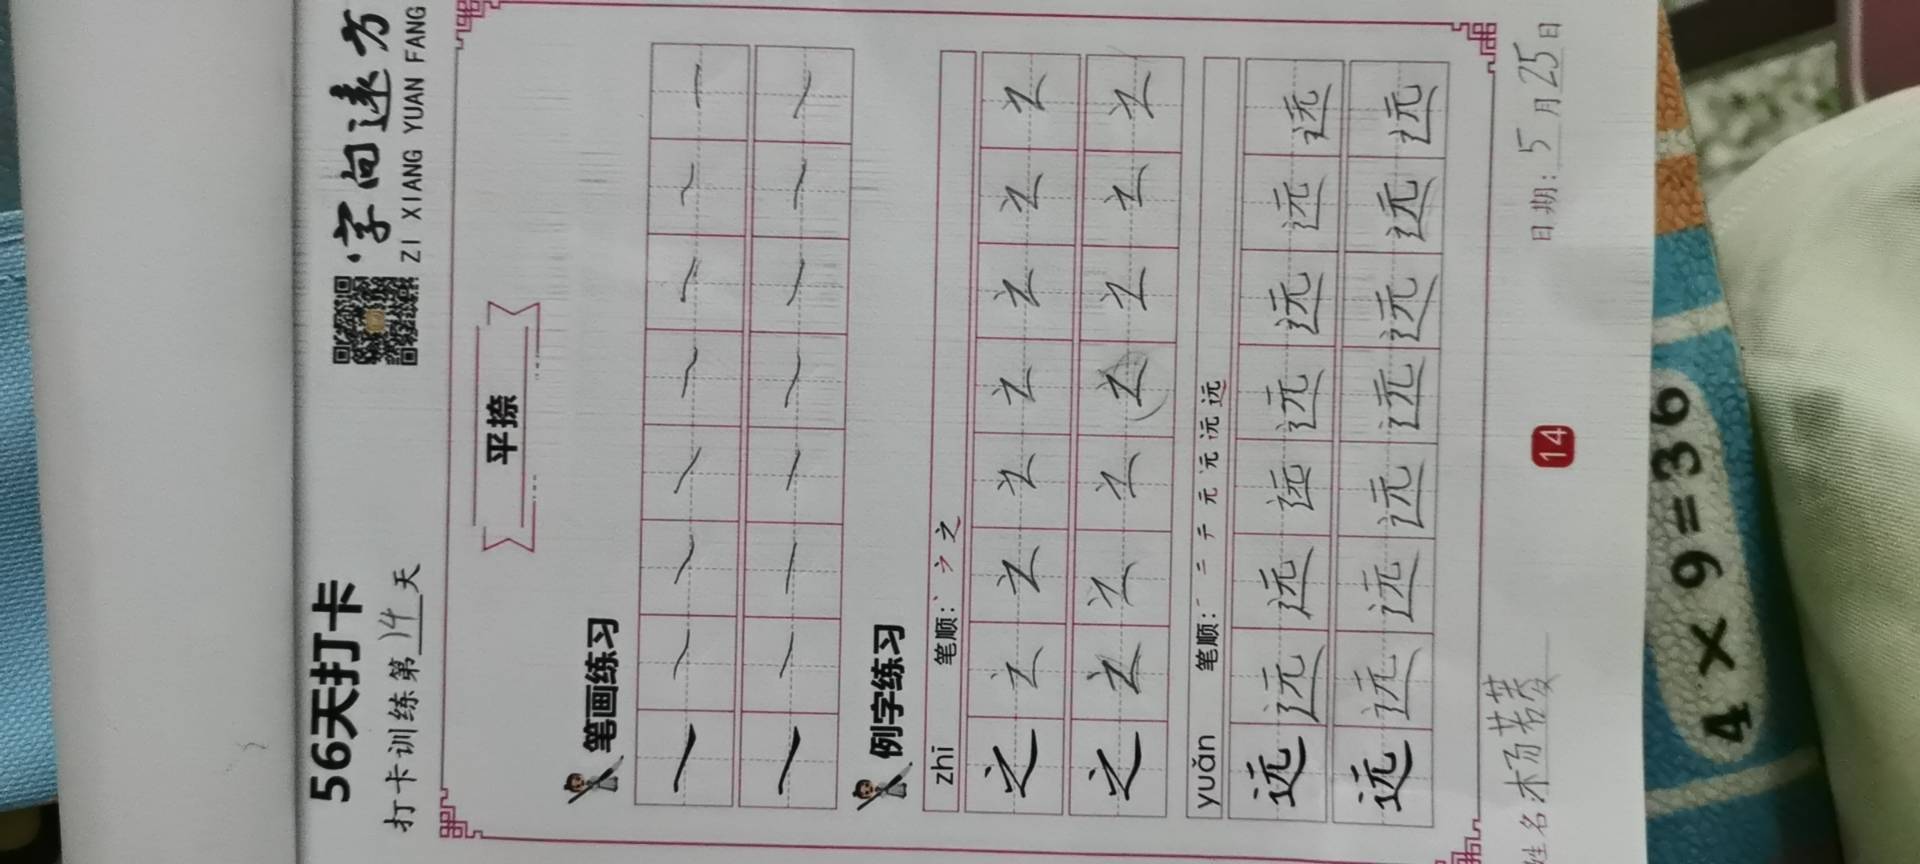 56天打卡
打卡训练第14天
·字向远方
ZI XIANG YUAN FANG
平捺
笔画练习
例字练习
zhī 笔顺:丶 ㇇ 之
之 之 之 之 之 之 之 之
之 之 之 之 之 之 之 之
yuǎn 笔顺:一 二 テ 元 元 远 远
远 远 远 远 远 远 远 远
远 远 远 远 远 远 远 远
姓名 杨若菱 14 日期:5月25日
4×9=36